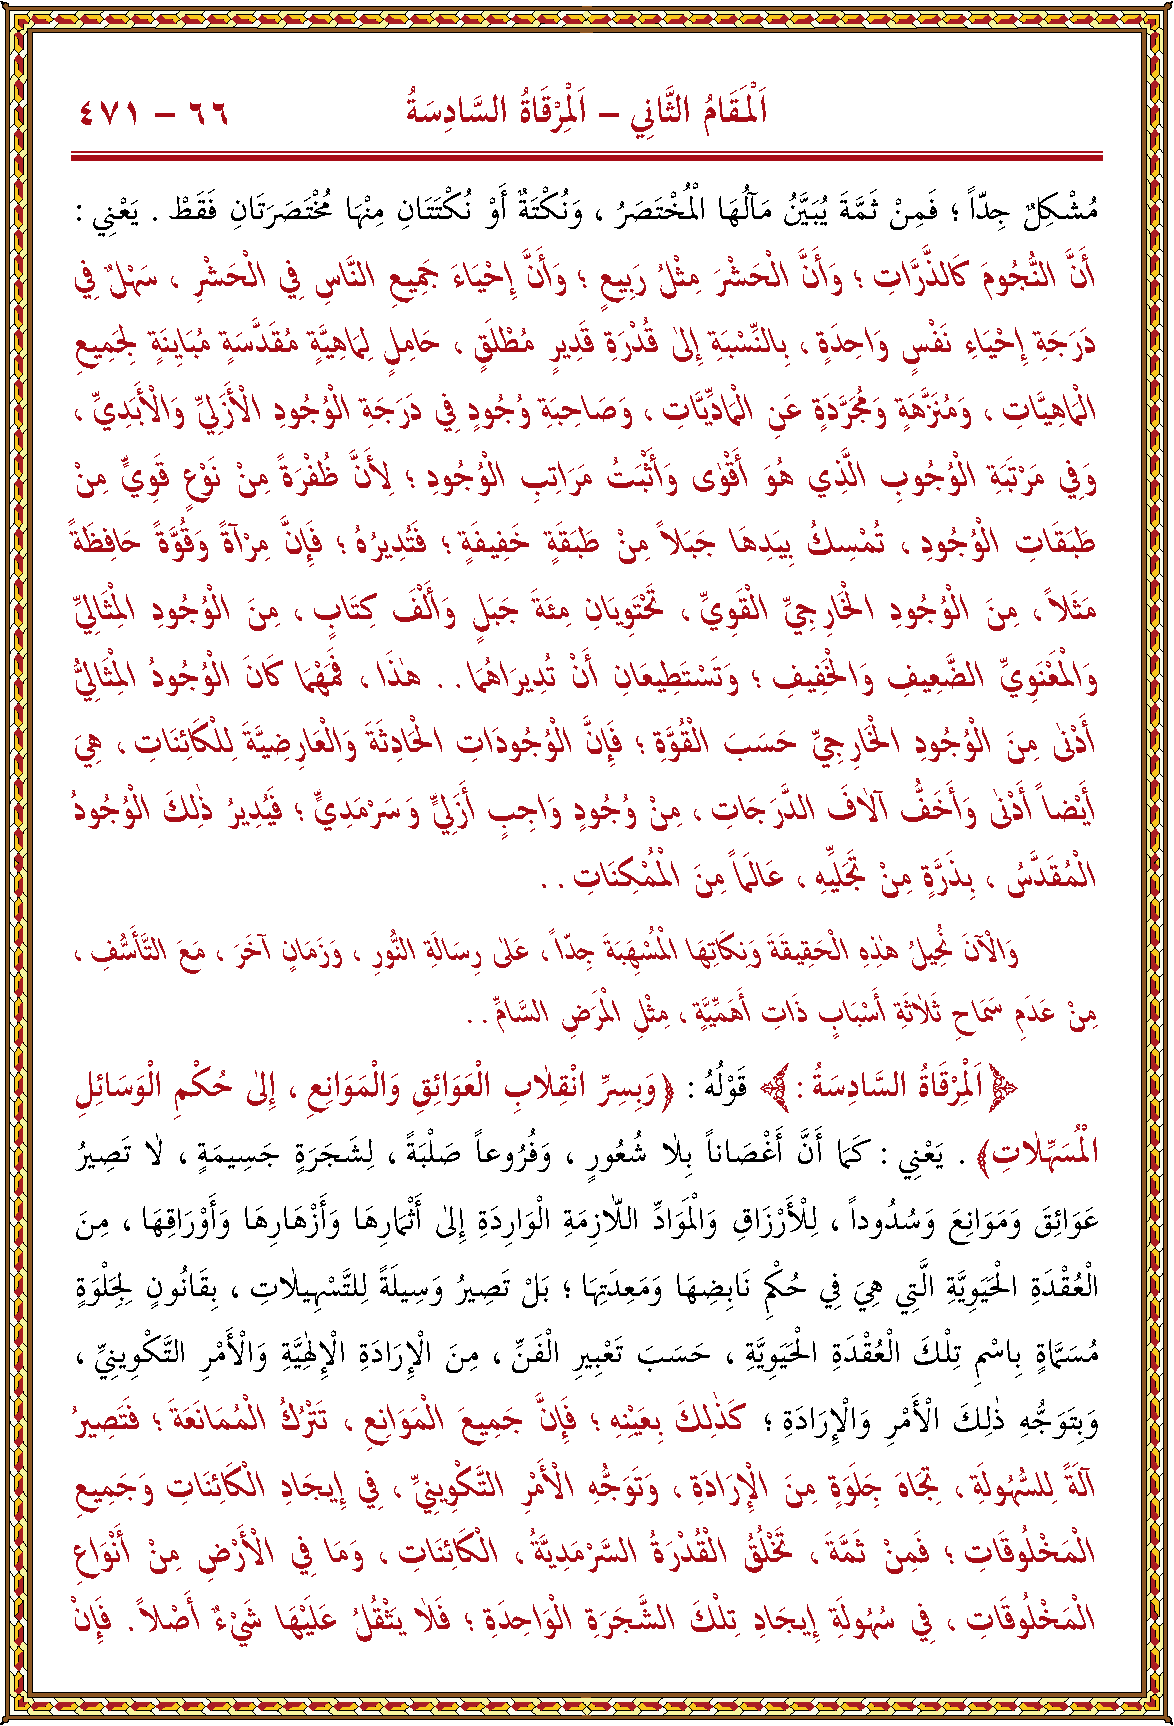 اَلْمَقَامُ الثَّانِي – اَلْمِرْقَاةُ السَّادِسَةُ ٦٦ – ٤٧١
مُشْكِلٌ جِدّاً ؛ فَمِنْ ثَمَّةَ يُبَيَّنُ مَآلُهَا الْمُخْتَصَرُ ، وَنُكْتَةٌ أَوْ نُكْتَتَانِ مِنْهَا مُخْتَصَرَتَانِ فَقَطْ . يَعْنِي :
أَنَّ النُّجُومَ كَالذَّرَّاتِ ؛ وَأَنَّ الْحَشْرَ مِثْلُ رَبِيعٍ ؛ وَأَنَّ إِحْيَاءَ جَمِيعِ النَّاسِ فِي الْحَشْرِ ، سَهْلٌ فِي
دَرَجَةِ إِحْيَاءِ نَفْسٍ وَاحِدَةٍ ، بِالنِّسْبَةِ إِلٰى قُدْرَةِ قَدِيرٍ مُطْلَقٍ ، حَامِلٍ لِمَاهِيَّةٍ مُقَدَّسَةٍ مُبَايِنَةٍ لِجَمِيعِ
الْمَاهِيَّاتِ ، وَمُنَزَّهَةٍ وَمُجَرَّدَةٍ عَنِ الْمَادِّيَّاتِ ، وَصَاحِبَةِ وُجُودٍ فِي دَرَجَةِ الْوُجُودِ الْأَزَلِيِّ وَالْأَبَدِيِّ ،
وَفِي مَرْتَبَةِ الْوُجُوبِ الَّذِي هُوَ أَقْوٰى وَأَثْبَتُ مَرَاتِبِ الْوُجُودِ ؛ لِأَنَّ ظُفْرَةً مِنْ نَوْعٍ قَوِيٍّ مِنْ
طَبَقَاتِ الْوُجُودِ ، تُمْسِكُ بِيَدِهَا جَبَلاً مِنْ طَبَقَةٍ خَفِيفَةٍ ؛ فَتُدِيرُهُ ؛ فَإِنَّ مِرْآةً وَقُوَّةً حَافِظَةً
مَثَلاً ، مِنَ الْوُجُودِ الْخَارِجِيِّ الْقَوِيِّ ، تَحْتَوِيَانِ مِئَةَ جَبَلٍ وَأَلْفَ كِتَابٍ ، مِنَ الْوُجُودِ الْمِثَالِيِّ
وَالْمَعْنَوِيِّ الضَّعِيفِ وَالْخَفِيفِ ؛ وَتَسْتَطِيعَانِ أَنْ تُدِيرَاهُمَا . . هٰذَا ، فَمَهْمَا كَانَ الْوُجُودُ الْمِثَالِيُّ
أَدْنٰى مِنَ الْوُجُودِ الْخَارِجِيِّ حَسَبَ الْقُوَّةِ ؛ فَإِنَّ الْوُجُودَاتِ الْحَادِثَةَ وَالْعَارِضِيَّةَ لِلْكَائِنَاتِ ، هِيَ
أَيْضاً أَدْنٰى وَأَخَفُّ آلَافَ الدَّرَجَاتِ ، مِنْ وُجُودٍ وَاجِبٍ أَزَلِيٍّ وَسَرْمَدِيٍّ ؛ فَيُدِيرُ ذٰلِكَ الْوُجُودُ
الْمُقَدَّسُ ، بِذَرَّةٍ مِنْ تَجَلِّيهِ ، عَالَماً مِنَ الْمُمْكِنَاتِ . .
وَالْآنَ نُحِيلُ هٰذِهِ الْحَقِيقَةَ وَنِكَاتِهَا الْمُسْهِبَةَ جِدّاً ، عَلٰى رِسَالَةِ النُّورِ ، وَزَمَانٍ آخَرَ ، مَعَ التَّأَسُّفِ ،
مِنْ عَدَمِ سَمَاحِ ثَلَاثَةِ أَسْبَابٍ ذَاتِ أَهَمِّيَّةٍ ، مِثْلِ الْمَرَضِ السَّامِّ . .
﴿اَلْمِرْقَاةُ السَّادِسَةُ :﴾ قَوْلُهُ : ﴿وَبِسِرِّ انْقِلَابِ الْعَوَائِقِ وَالْمَوَانِعِ ، إِلٰى حُكْمِ الْوَسَائِلِ
الْمُسَهِّلَاتِ﴾ . يَعْنِي : كَمَا أَنَّ أَغْصَاناً بِلَا شُعُورٍ ، وَفُرُوعاً صَلْبَةً ، لِشَجَرَةٍ جَسِيمَةٍ ، لَا تَصِيرُ
عَوَائِقَ وَمَوَانِعَ وَسُدُوداً ، لِلْأَرْزَاقِ وَالْمَوَادِّ اللَّازِمَةِ الْوَارِدَةِ إِلٰى أَثْمَارِهَا وَأَزْهَارِهَا وَأَوْرَاقِهَا ، مِنَ
الْعُقْدَةِ الْحَيَوِيَّةِ الَّتِي هِيَ فِي حُكْمِ نَابِضِهَا وَمَعِدَتِهَا ؛ بَلْ تَصِيرُ وَسِيلَةً لِلتَّسْهِيلَاتِ ، بِقَانُونٍ لِجِلْوَةٍ
مُسَمَّاةٍ بِاسْمِ تِلْكَ الْعُقْدَةِ الْحَيَوِيَّةِ ، حَسَبَ تَعْبِيرِ الْفَنِّ ، مِنَ الْإِرَادَةِ الْإِلٰهِيَّةِ وَالْأَمْرِ التَّكْوِينِيِّ ،
وَبِتَوَجُّهِ ذٰلِكَ الْأَمْرِ وَالْإِرَادَةِ ؛ كَذٰلِكَ بِعَيْنِهِ ؛ فَإِنَّ جَمِيعَ الْمَوَانِعِ ، تَتْرُكُ الْمُمَانَعَةَ ؛ فَتَصِيرُ
آلَةً لِلسُّهُولَةِ ، تِجَاهَ جَلَوَةٍ مِنَ الْإِرَادَةِ ، وَتَوَجُّهِ الْأَمْرِ التَّكْوِينِيِّ ، فِي إِيجَادِ الْكَائِنَاتِ وَجَمِيعِ
الْمَخْلُوقَاتِ ؛ فَمِنْ ثَمَّةَ ، تَخْلُقُ الْقُدْرَةُ السَّرْمَدِيَّةُ ، الْكَائِنَاتِ ، وَمَا فِي الْأَرْضِ مِنْ أَنْوَاعِ
الْمَخْلُوقَاتِ ، فِي سُهُولَةِ إِيجَادِ تِلْكَ الشَّجَرَةِ الْوَاحِدَةِ ؛ فَلَا يَثْقُلُ عَلَيْهَا شَيْءٌ أَصْلاً . فَإِنْ